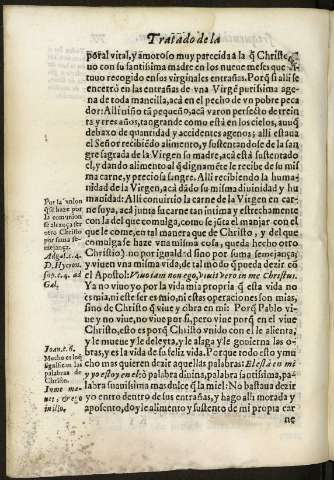 Tratado de la
poral vital, y amoroso muy parecida a la q̃ Christo
uo con su santisima madre en los nueue meses que es-
tuuo recogido en sus virginales entrañas. Porq̃ si alli se
encerrò en las entrañas de vna Virgẽ purissima age-
na de toda mancilla, acà en el pecho de vn pobre peca
dor: Alli niño tã pequeño, acà varon perfecto de trein
ta y tres años, tan grande como està en los cielos, aunq̃
debaxo de quantidad y accidentes agenos; alli estaua
el Señor recibiẽdo alimento, y sustentandose de la san
gre sagrada de la Virgen su madre, acà està sustentado
el, y dando alimento al q̃ dignamẽte le recibe de su mis
ma carne, y preciosa sangre. Alli recibiendo la huma-
nidad de la Virgen, acà dãdo su misma diuinidad y hu
manidad: Alli conuirtio la carne de la Virgen en car-
ne suya, acà junta su carne tan intima y estrechamente
con la del que comulga, como se jũta el manjar con el
que le come, en tal manera que de Christo, y del que
comulga se haze vna misma cosa, queda hecho otro
Christo) no por igualdad sino por suma semejança;
y viue en vna misma vida, de tal modo q̃ pueda dezir cõ
el Apostol: Viuo iam non ego, viuit vero in me Christus.
Ya no viuo yo por la vida mia propria q̃ esta vida no
es mia, ni este ser es mio, ni estas operaciones son mias,
sino de Christo q̃ viue y obra en mi: Porq̃ Pablo vi-
uo, no viuo, no viue por si, pero viue porq̃ en el viue
Christo, esto es porq̃ Christo vnido con el le alienta,
y le mueue y le deleyta, y le alaga y le gouierna las o-
bras, y es la vida de su feliz vida. Porque todo esto y mu
cho mas quieren dezir aquellas palabras: El està en mi
y yo estoy en el: ò palabra diuina, palabra santissima, pa-
labra suauissima mas dulce q̃ la miel: No bastaua dezir
yo entro dentro de sus entrañas, y hago alli morada y
aposento, doyle alimento y sustento de mi propia car
ne
Por la vnion
que se haze por
la comunion
se alcança ser
otro Christo
por suma se-
mejança.
Ad gal. c. 4.
D. Hyeron.
sup. c. 4. ad
Gal.
Ioan. c. 6.
Mucho es lo q̃
significan las
palabras de
Christo.
In me ma-
net, & ego
in illo.